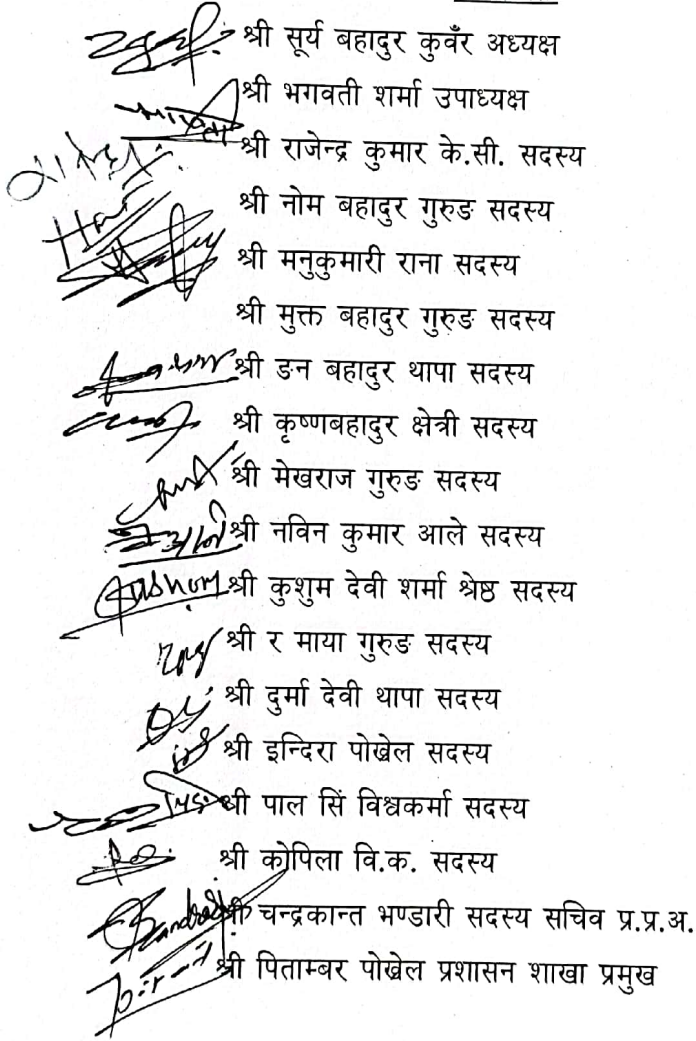 श्री सूर्य बहादुर कुवँर अध्यक्ष
श्री भगवती शर्मा उपाध्यक्ष
श्री राजेन्द्र कुमार के.सी. सदस्य
श्री नोम बहादुर गुरुङ सदस्य
श्री मनुकुमारी राना सदस्य
श्री मुक्त बहादुर गुरुङ सदस्य
श्री ङन बहादुर थापा सदस्य
श्री कृष्णबहादुर क्षेत्री सदस्य
श्री मेखराज गुरुङ सदस्य
श्री नविन कुमार आले सदस्य
श्री कुशुम देवी शर्मा श्रेष्ठ सदस्य
श्री र माया गुरुङ सदस्य
श्री दुर्मा देवी थापा सदस्य
श्री इन्दिरा पोख्रेल सदस्य
श्री पाल सिं विश्वकर्मा सदस्य
श्री कोपिला वि.क. सदस्य
श्री चन्द्रकान्त भण्डारी सदस्य सचिव प्र.प्र.अ.
श्री पिताम्बर पोख्रेल प्रशासन शाखा प्रमुख